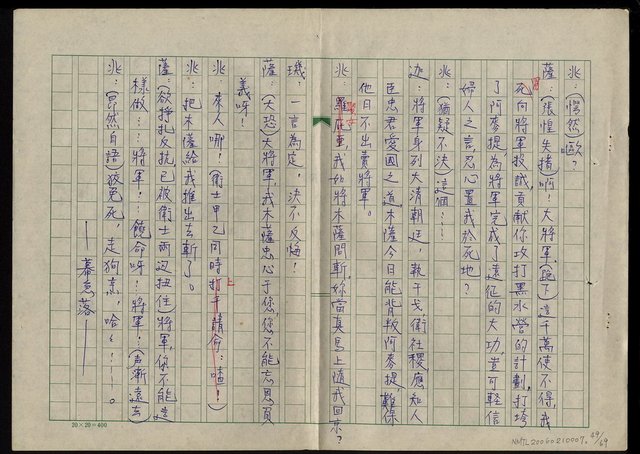 兆：(愕然)嘔？
薩：(張惶失措)啊！大將軍(跪下)這千萬使不得，我
死向將軍投誠，貢献你攻打黑水營的計劃，打垮
了阿麥提為將軍完成了遠征的大功，豈可輕信
婦人之言，忍心置我於死地？
兆：(猶疑不決)這個⋯⋯
迦：將軍身列大清朝廷，執干戈，衛社稷，應知人
臣忠君愛國之道，木薩今日能背叛阿麥提，難保
他日不出賣將軍。
兆：我如將木薩問斬，妳當真馬上隨我回京？
璣：一言為定，決不反悔！
薩：(大恐)大將軍，我木薩忠心于您，您不能忘恩負
義呀！
兆：來人哪！(衛士甲乙同時上打千請命：喳！)
兆：把木薩給我推出去斬了。
薩：(欲掙扎反抗已被衛士兩边扭住)將軍，你不能這
樣做⋯⋯將軍！⋯饒命呀！將軍！(声漸遠去)
兆：(昂然自語)狡兔死，走狗烹，哈⋯⋯。
——幕急落——
20×20=400
NMTL20060210007.
49/69